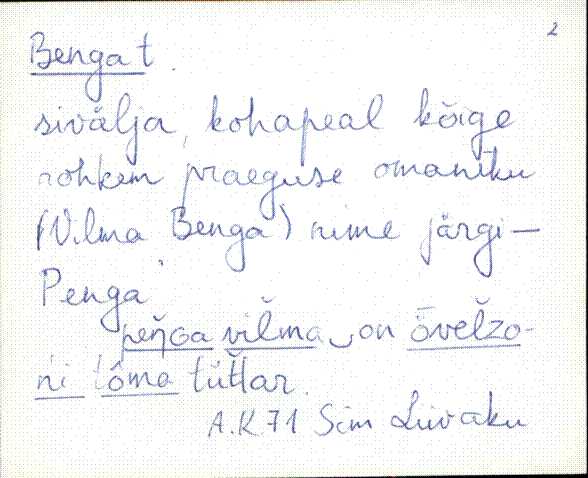 2
Benga t.
sivälja, kohapeal kõige
rohkem praeguse omaniku
(Vilma Benga) nime järgi—
Penga
peŋGa vilma on
tütar.
A.K 71 Siim Liivaku